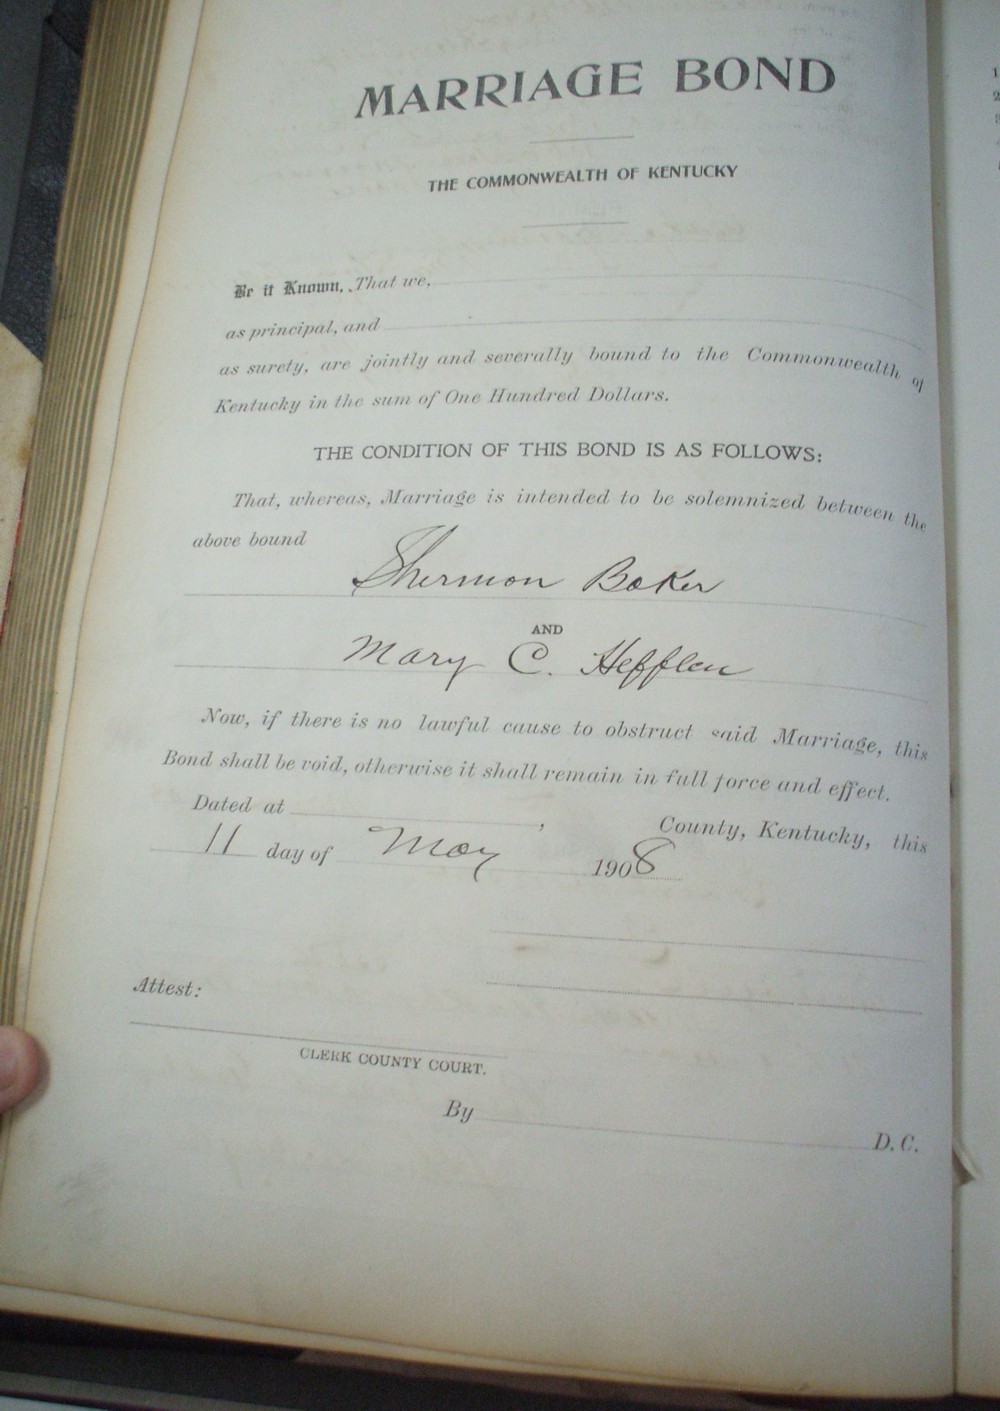 MARRIAGE BOND
THE COMMONWEALTH OF KENTUCKY
Be it Known, That we,
as principal, and
as surety, are jointly and severally bound to the Commonwealth of
Kentucky in the sum of One Hundred Dollars.
THE CONDITION OF THIS BOND IS AS FOLLOWS:
That, whereas, Marriage is intended to be solemnized between the
above bound
Shermon Baker
AND
Mary C. Hefflen
Now, if there is no lawful cause to obstruct said Marriage, this
Bond shall be void, otherwise it shall remain in full force and effect.
Dated at , County, Kentucky, this
11 day of May 1908
Attest:
CLERK COUNTY COURT.
By D. C.